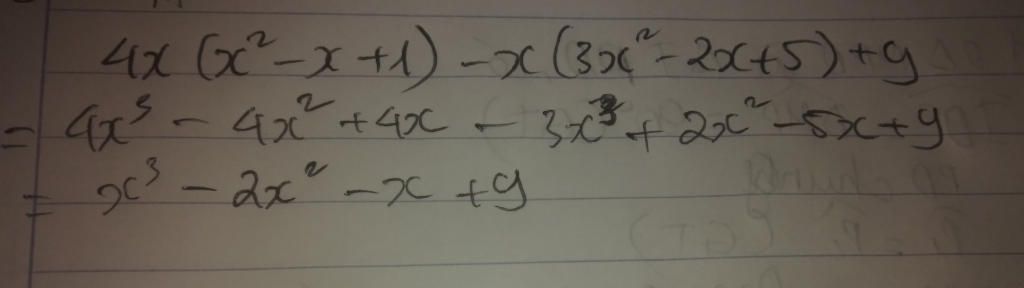 4x (x² - x + 1) - x (3x² - 2x + 5) + y
= 4x³ - 4x² + 4x - 3x³ + 2x² - 5x + y
= x³ - 2x² - x + y